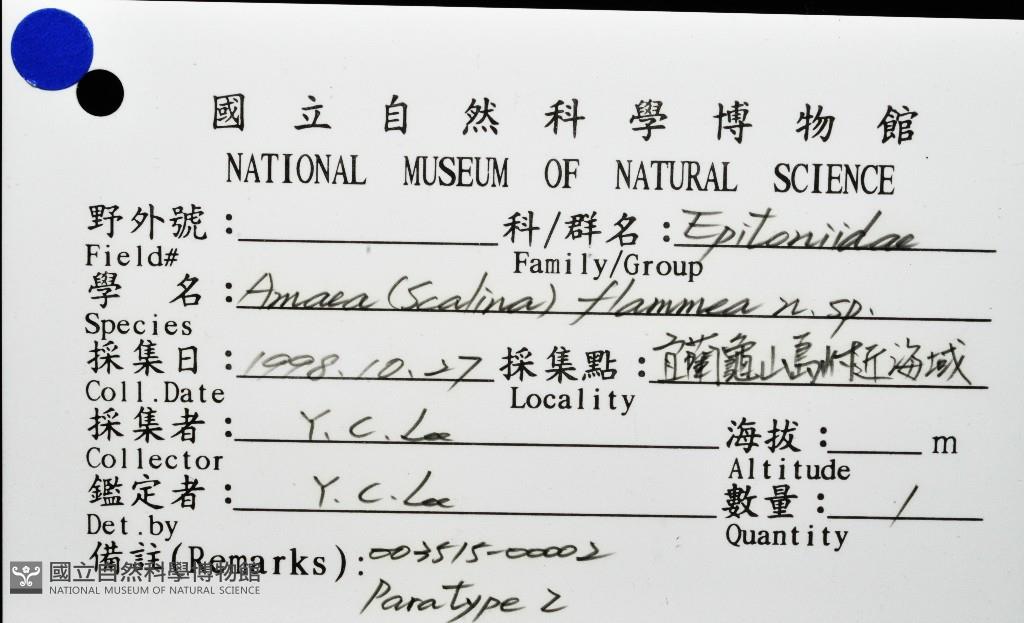 國立自然科學博物館
NATIONAL MUSEUM OF NATURAL SCIENCE
野外號: 科/群名: Epitoniidae
Field# Family/Group
學 名: Amaea (Scalina) flammea n. sp.
Species
採集日: 1998.10.27 採集點: 宜蘭龜山島附近海域
Coll.Date Locality
採集者: Y. C. Lee 海拔: m
Collector Altitude
鑑定者: Y. C. Lee 數量: 1
Det.by Quantity
備註(Remarks): 003515-00002
Paratype 2
國立自然科學博物館
NATIONAL MUSEUM OF NATURAL SCIENCE